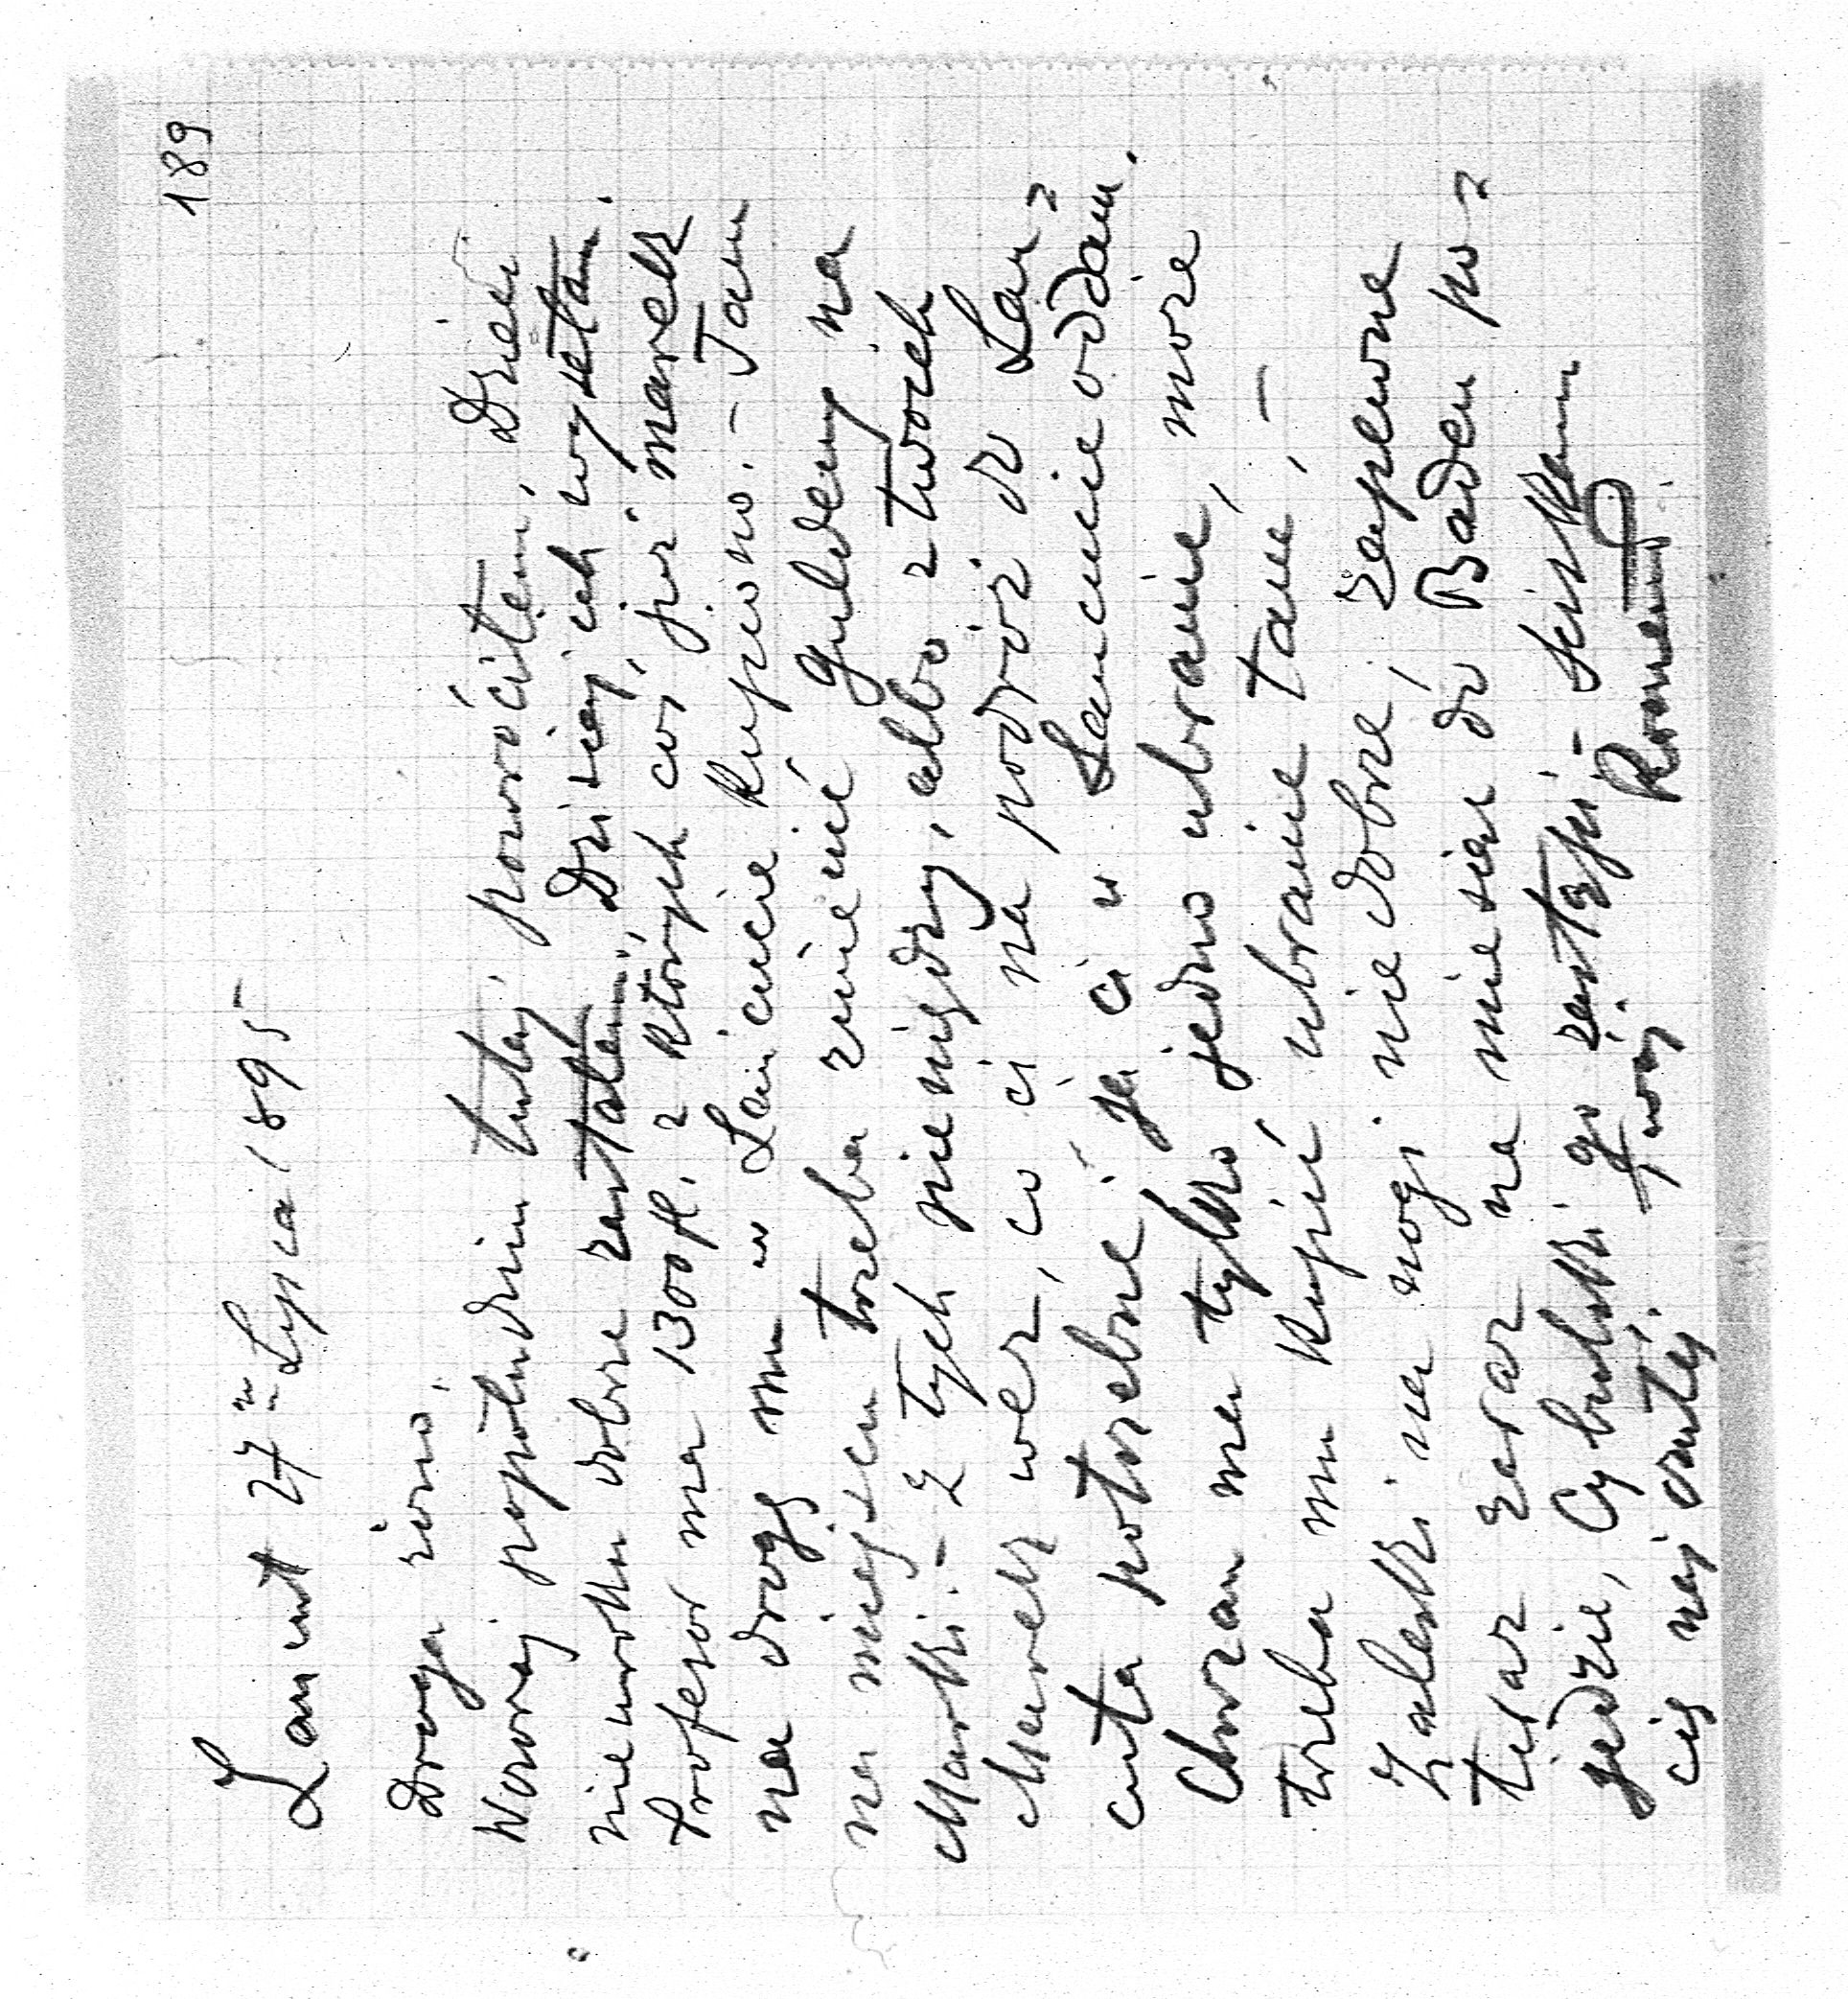 189
Łańcut 27º Lypca 1895
Droga żono,
Wczoraj popołudniu tutaj powróciłem, Dzieci
nie wszystko dobrze zastałem, Dzisiaj ich wysłałam.
Profesor ma 1300 fl. z których coś już marek
na drogę mu w Łańcucie kupiono. – Tam
na miejscu trzeba zmienić Guldeny na
Marki. – Z tych pieniędzy, albo z twoich
Marek weź, co ci na podróż do Łań=
cuta potrzebne, ja ci w Łańcucie oddam.
Chrzan ma tylko jedno ubranie, może
trzeba mu kupić ubranie tam, –
Zaleski na nogi nie dobrze, zapewne
teraz zaraz na miesiąc do Baden po=
jedzie, Cybulski go zastąpi. – Ściskam
cię najczulej. Twój Roman